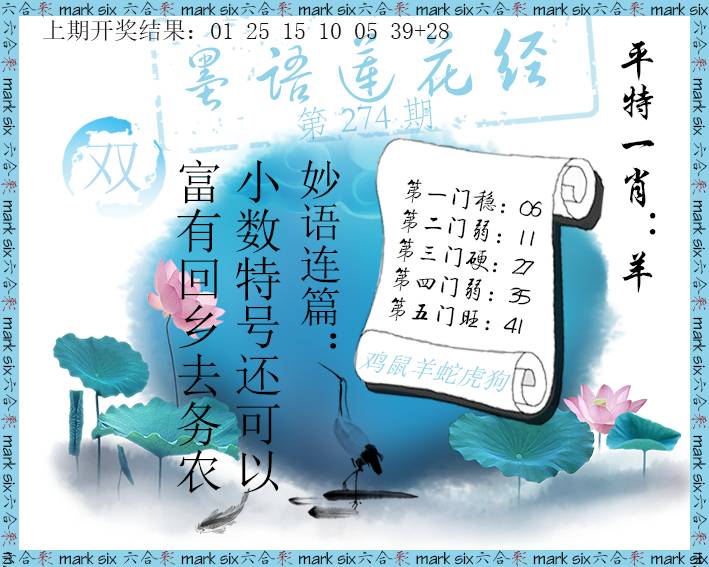 上期开奖结果：01 25 15 10 05 39+28
墨语莲花经
第 274 期
双
平特一肖：羊
妙语连篇：
小数特号还可以
富有回乡去务农
第一门稳：06
第二门弱：11
第三门硬：27
第四门弱：35
第五门旺：41
鸡鼠羊蛇虎狗
六合彩 mark six 六合彩 mark six 六合彩 mark six 六合彩 mark six 六合彩 mark six